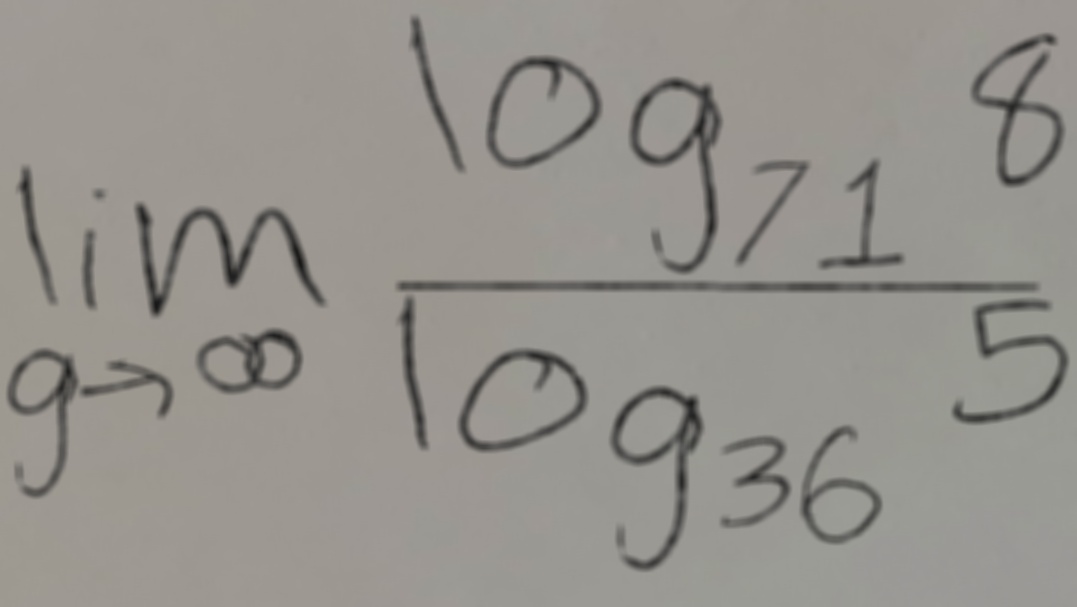 lim g→∞ log₇₁ 8 / log₃₆ 5